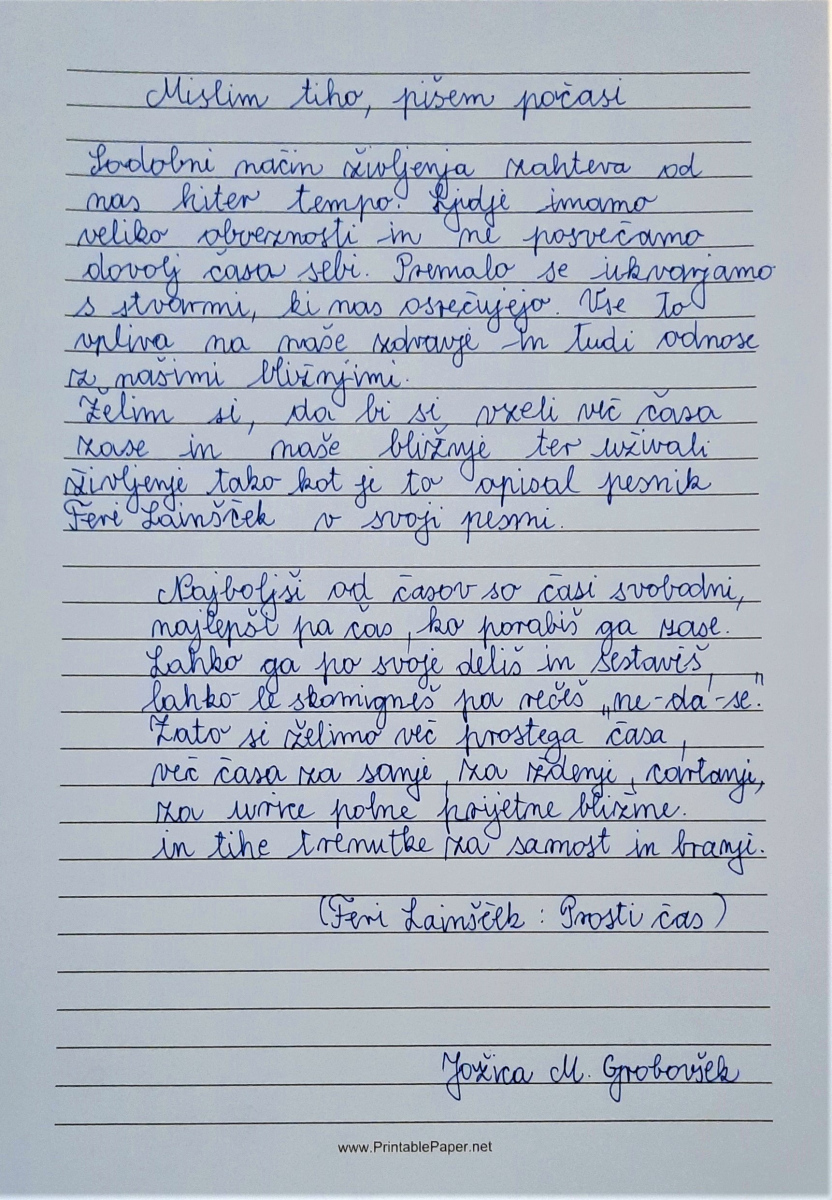 Mislim tiho, pišem počasi
Sodobni način življenja zahteva od
nas hiter tempo. Ljudje imamo
veliko obveznosti in ne posvečamo
dovolj časa sebi. Premalo se ukvarjamo
s stvarmi, ki nas osrečujejo. Vse to
vpliva na naše zdravje in tudi odnose
z našimi bližnjimi.
Želim si, da bi si vzeli več časa
zase in naše bližnje ter uživali
življenje tako kot je to opisal pesnik
Feri Lainšček v svoji pesmi.
Najboljši od časov so časi svobodni,
najlepši pa čas, ko porabiš ga zase.
Lahko ga po svoje deliš in sestaviš,
lahko le skomigneš pa rečeš „ne-da-se."
Zato si želimo več prostega časa,
več časa za sanje, za ždenje, cartanje,
za urice polne prijetne bližine.
in tihe trenutke za samost in branje.
(Feri Lainšček : Prosti čas)
Jožica M. Grobovšek
www.PrintablePaper.net